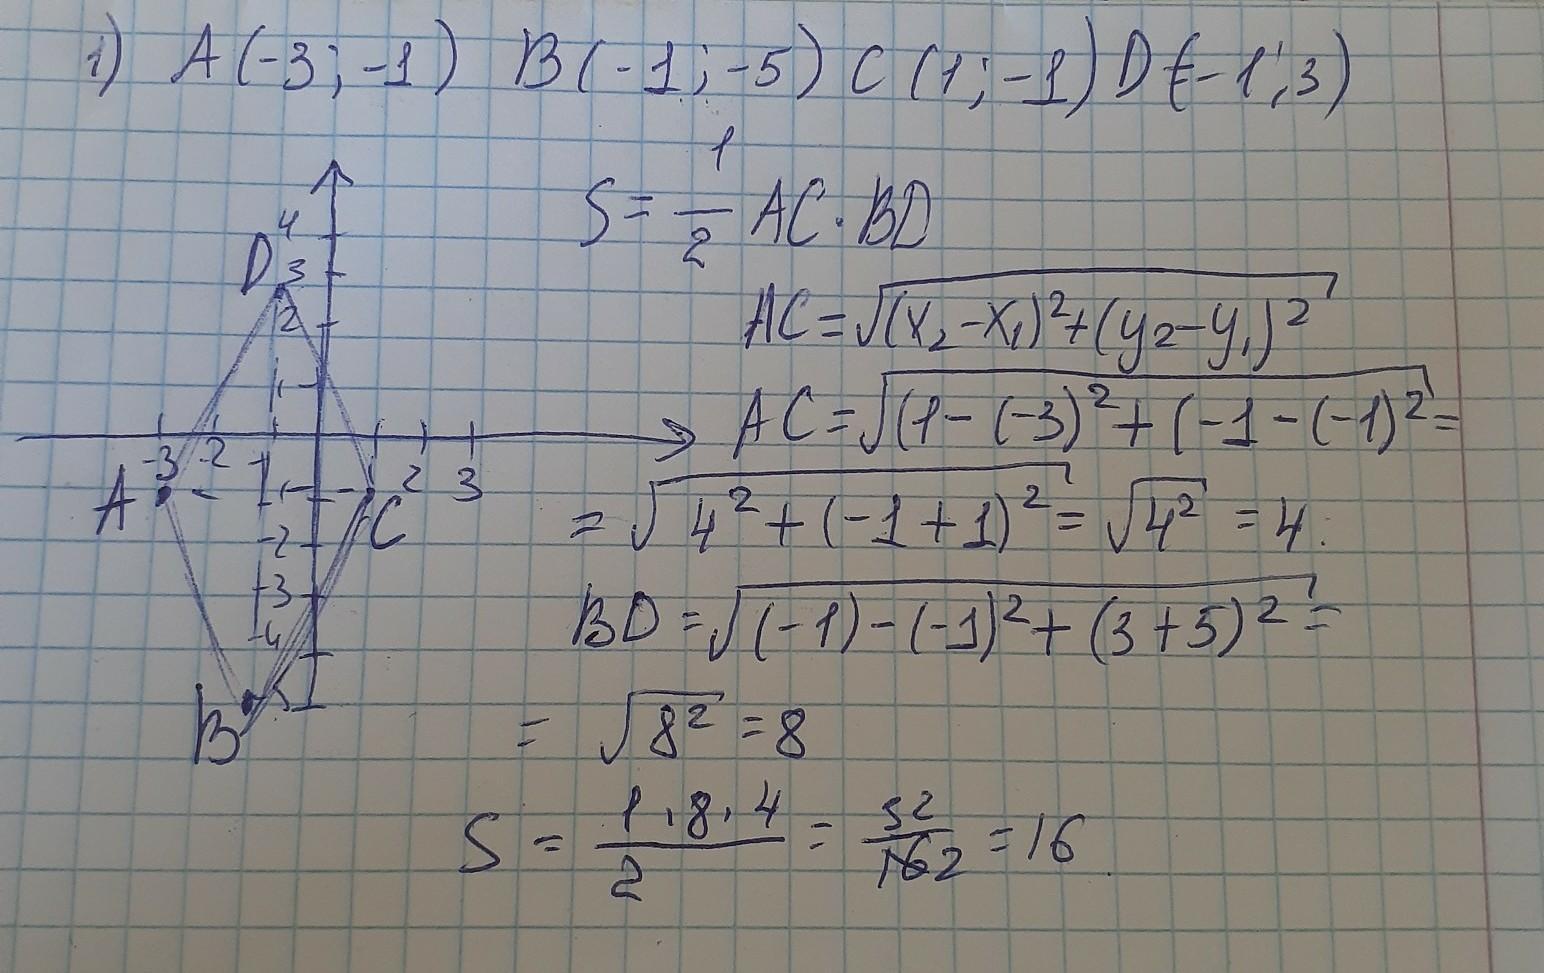 1) A(-3; -1) B(-1; -5) C(1; -1) D(-1; 3)
S = 1/2 AC · BD
AC = √((x₂ - x₁)² + (y₂ - y₁)²)
AC = √((1 - (-3)² + (-1 - (-1)² =
= √(4² + (-1 + 1)²) = √(4²) = 4.
BD = √((-1) - (-1)² + (3 + 5)²) =
= √(8²) = 8
S = (1 · 8 · 4)/2 = 32/2 = 16
4
D 3
2
1
-3 -2 -1 2 3
A C
-2
-3
-4
B